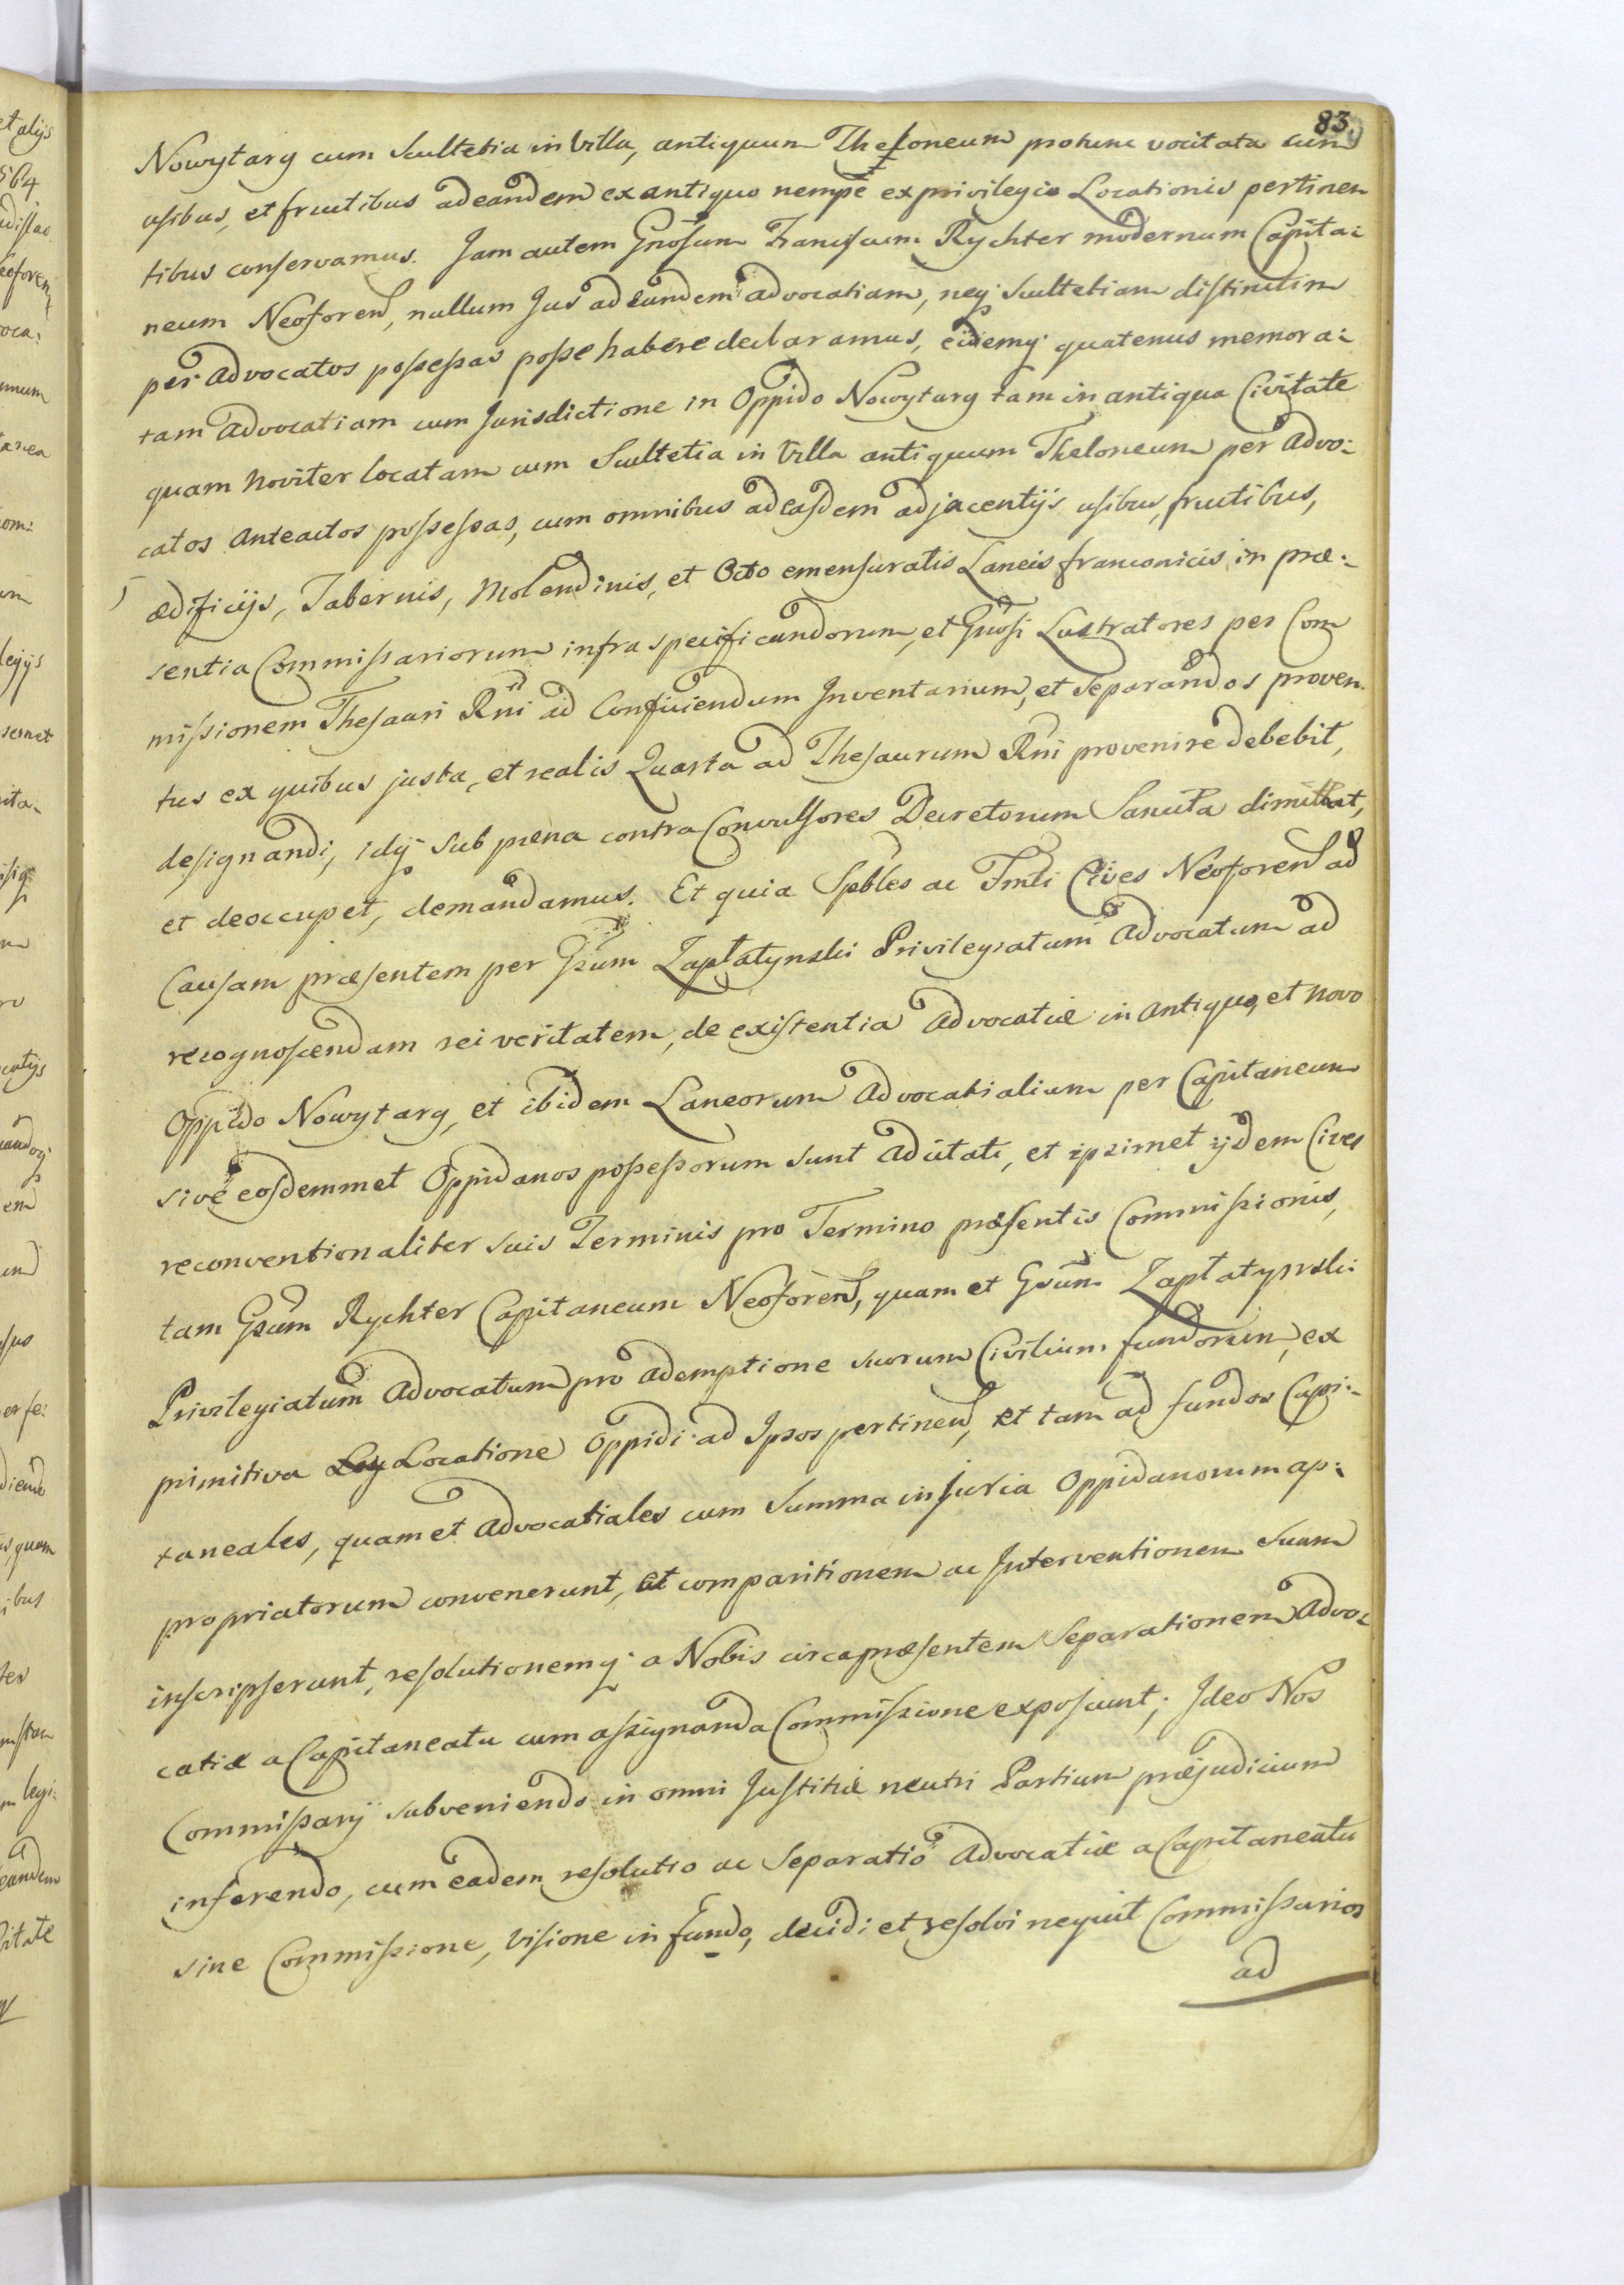 83.
Nowytarg cum Scultetia in Villa, antiquum Theloneum protunc vocitata cum
usibus, et fructibus ad eandem ex antiquo nempe ex privilegio Locationis pertinen
tibus conservamus. Jam autem Gnosum Franciscum Rychter modernum Capita:
neum Neoforen, nullum Jus ad eundem advocatiam, neq; Scultetiam distinctim
per Advocatos possessas posse habere declaramus, eidemq; quatenus memora:
tam Advocatiam cum Jurisdictione in Oppido Nowytarg tam in antiqua Civitate
quam Noviter locatam cum Scultetia in Villa antiquum Theloneum per Advo:
catos Anteactos possessas, cum omnibus ad easdem adjacentijs usibus, fructibus,
ædificijs, Tabernis, Molendinis, et Octo emensuratis Laneis franconicis in præ:
sentia Commissariorum infra specificandorum, et Gnosi Lustratores per Com
missionem Thesauri Rni ad Conficiendum Inventarium, et Separandos proven
tus ex quibus justa, et realis Quarta ad Thesaurum Rni provenire debebit,
designandi, idq; sub pæna contra Convulsores Decretorum Sancita dimittat,
et deoccupet, demandamus. Et quia Spbles ac Fmti Cives Neoforen ad
Causam præsentem per Gsum Zaplatynski Privilegiatum Advocatum ad
recognoscendam rei veritatem, de existentia Advocatiæ in Antiquo, et Novo
Oppido Nowytarg, et ibidem Laneorum Advocatialium per Capitaneum
sive eosdemmet Oppidanos possessorum sunt Adcitati, et ipsimet ijdem Cives
reconventionaliter suis Terminis pro Termino præsentis Commissionis,
tam Gsum Rychter Capitaneum Neoforen, quam et Gsum Zaplatynski
Privilegiatum Advocatum pro Ademptione suorum Civilium fundorum, ex
primitiva Locatione Oppidi ad Ipsos pertinen, et tam ad fundos Capi:
taneales, quam et Advocatiales cum Summa injuria Oppidanorum ap:
propriatorum convenerunt, et comparitionem ac Interventionem suam
inscripserunt, resolutionemq; a Nobis circa præsentem Separationem Advo:
catiæ a Capitaneatu cum assignanda Commissione exposcunt; Ideo Nos
Commissarij subveniendo in omni Justitiæ neutri Partium præjudicium
inferendo, cum eadem resolutio ac Separatio Advocatiæ a Capitaneatu
sine Commissione, Visione in fundo, decidi et resolvi nequit Commissarios
ad